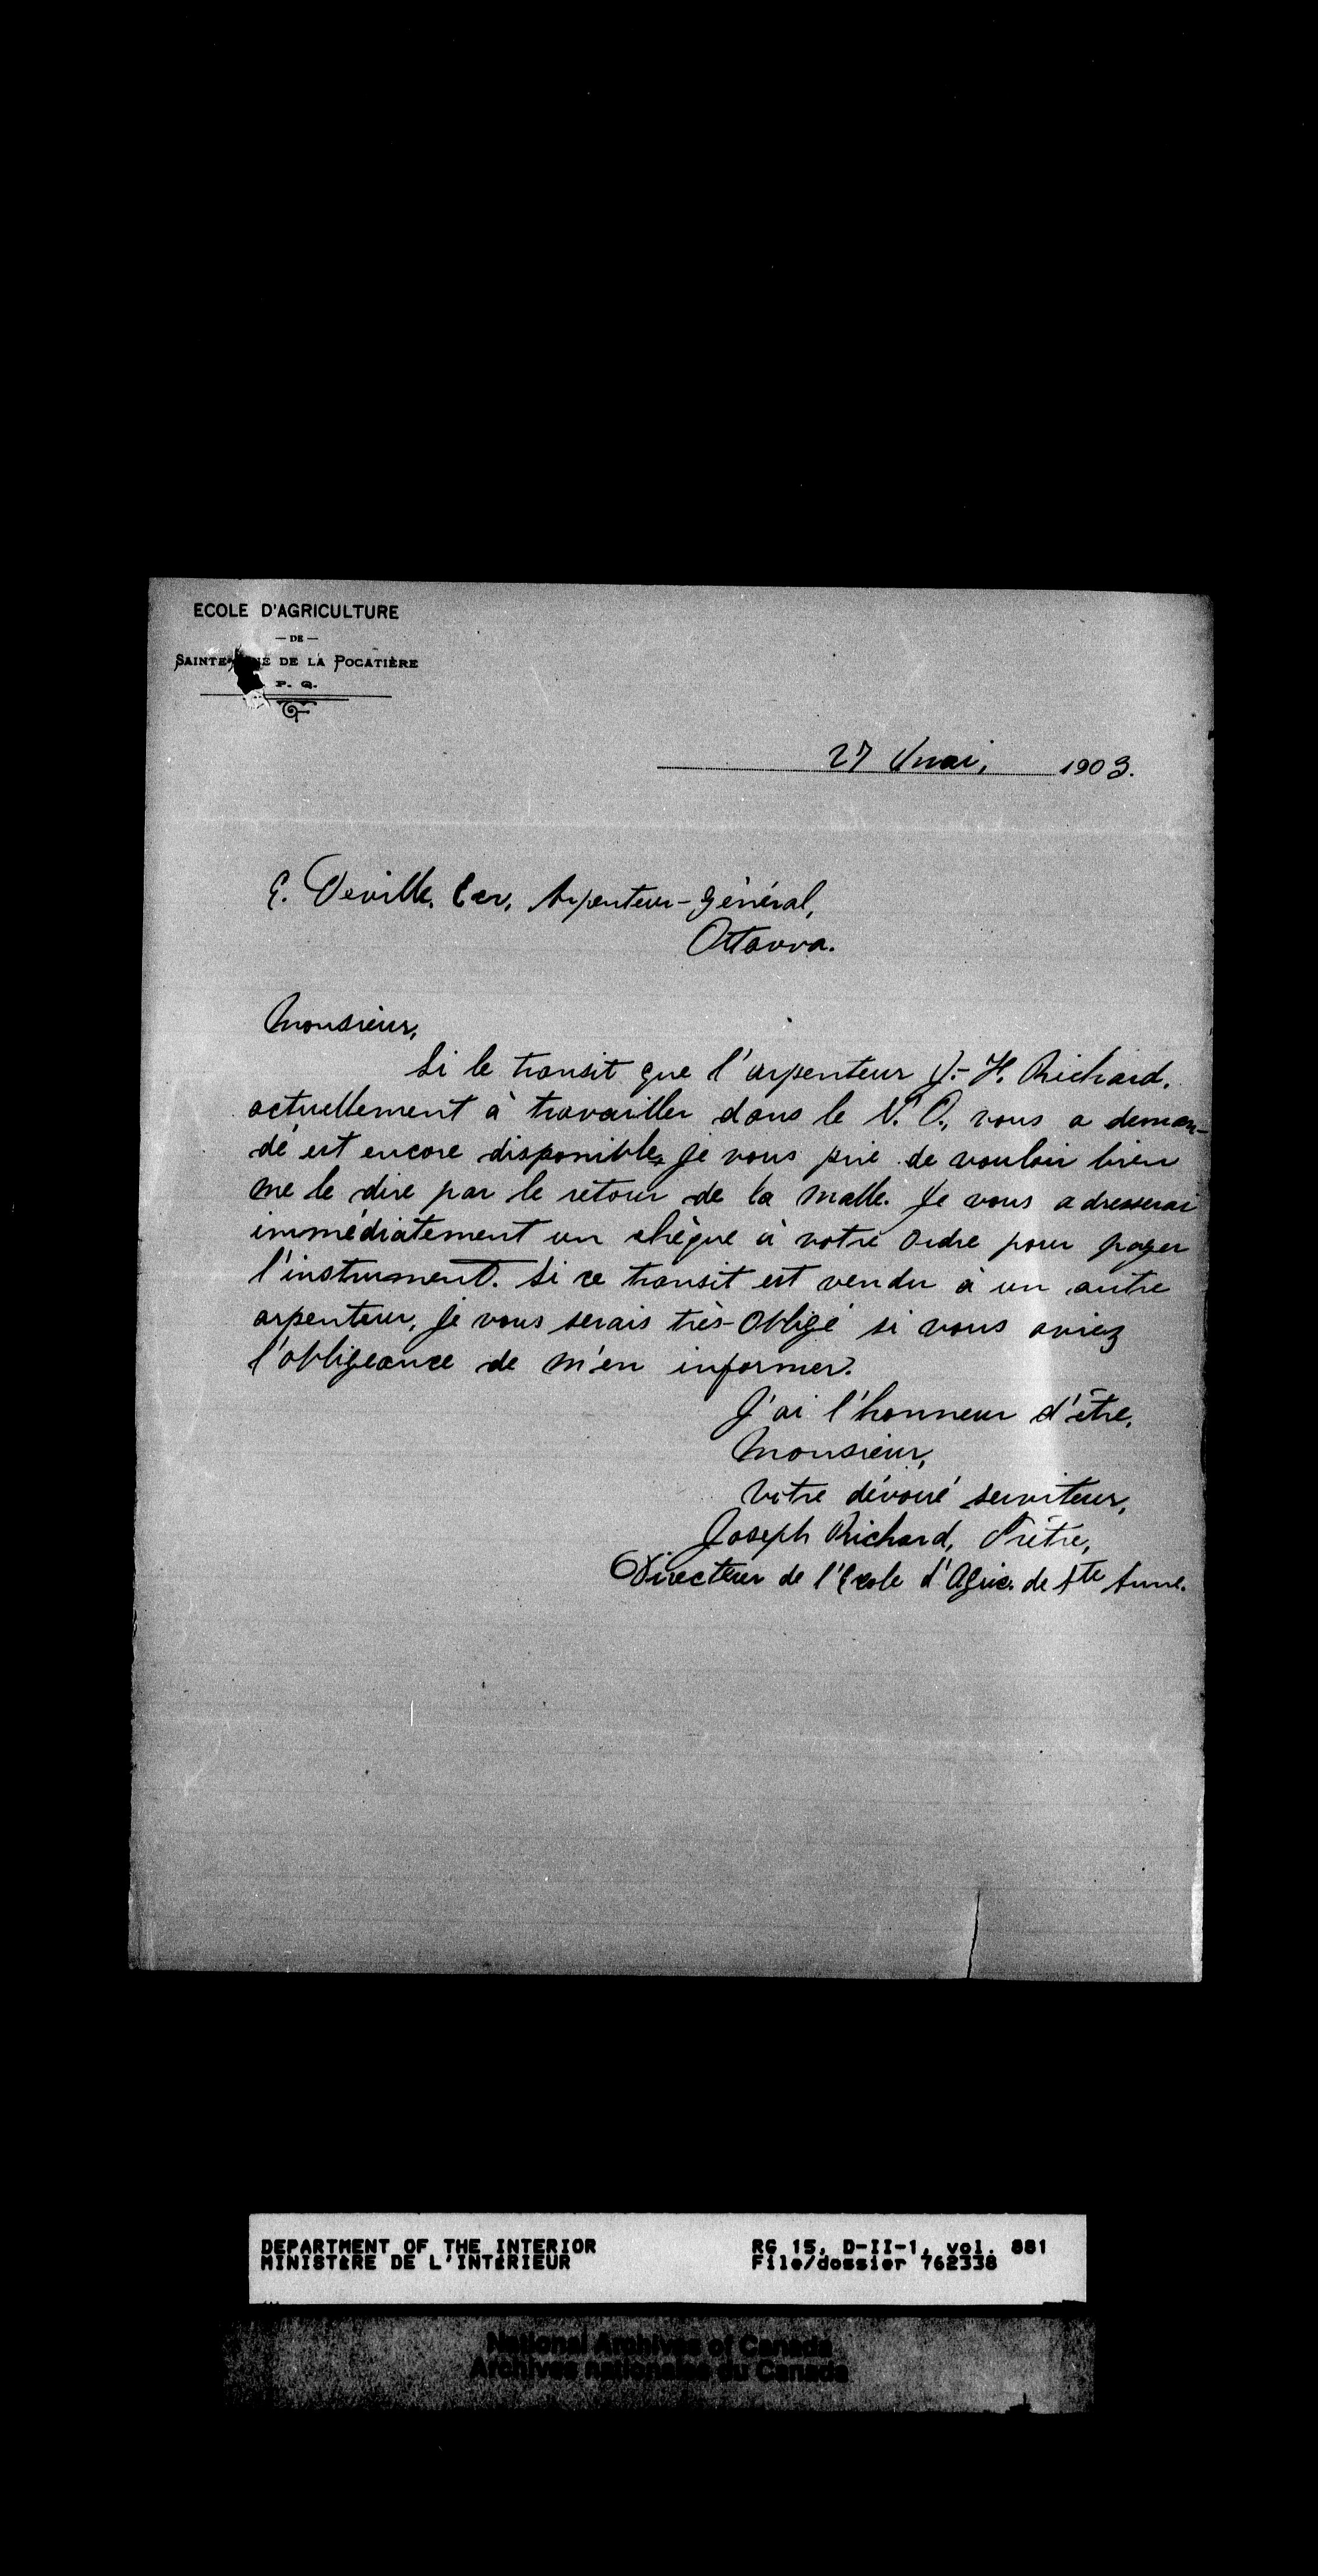 ECOLE D'AGRICULTURE
— DE —
SAINTE NE DE LA POCATIÈRE
P. Q.
27 Mai, 1903.
E. Deville, Ecr, Arpenteur-Général,
Ottawa.
Monsieur,
Si le transit que l'arpenteur J.-H. Richard,
actuellement à travailler dans le N.O., vous a deman-
dé est encore disponible, je vous prie de vouloir bien
me le dire par le retour de la malle. Je vous adresserai
immédiatement un chèque à votre ordre pour payer
l'instrument. Si ce transit est vendu à un autre
arpenteur, je vous serais très-obligé si vous aviez
l'obligeance de m'en informer.
J'ai l'honneur d'être,
Monsieur,
Votre dévoué serviteur,
Joseph Richard, Prêtre,
Directeur de l'Ecole d'Agric. de Ste Anne.
DEPARTMENT OF THE INTERIOR RG 15, D-II-1, vol. 881
MINISTÈRE DE L'INTÉRIEUR File/dossier 762338
National Archives of Canada
Archives nationales du Canada